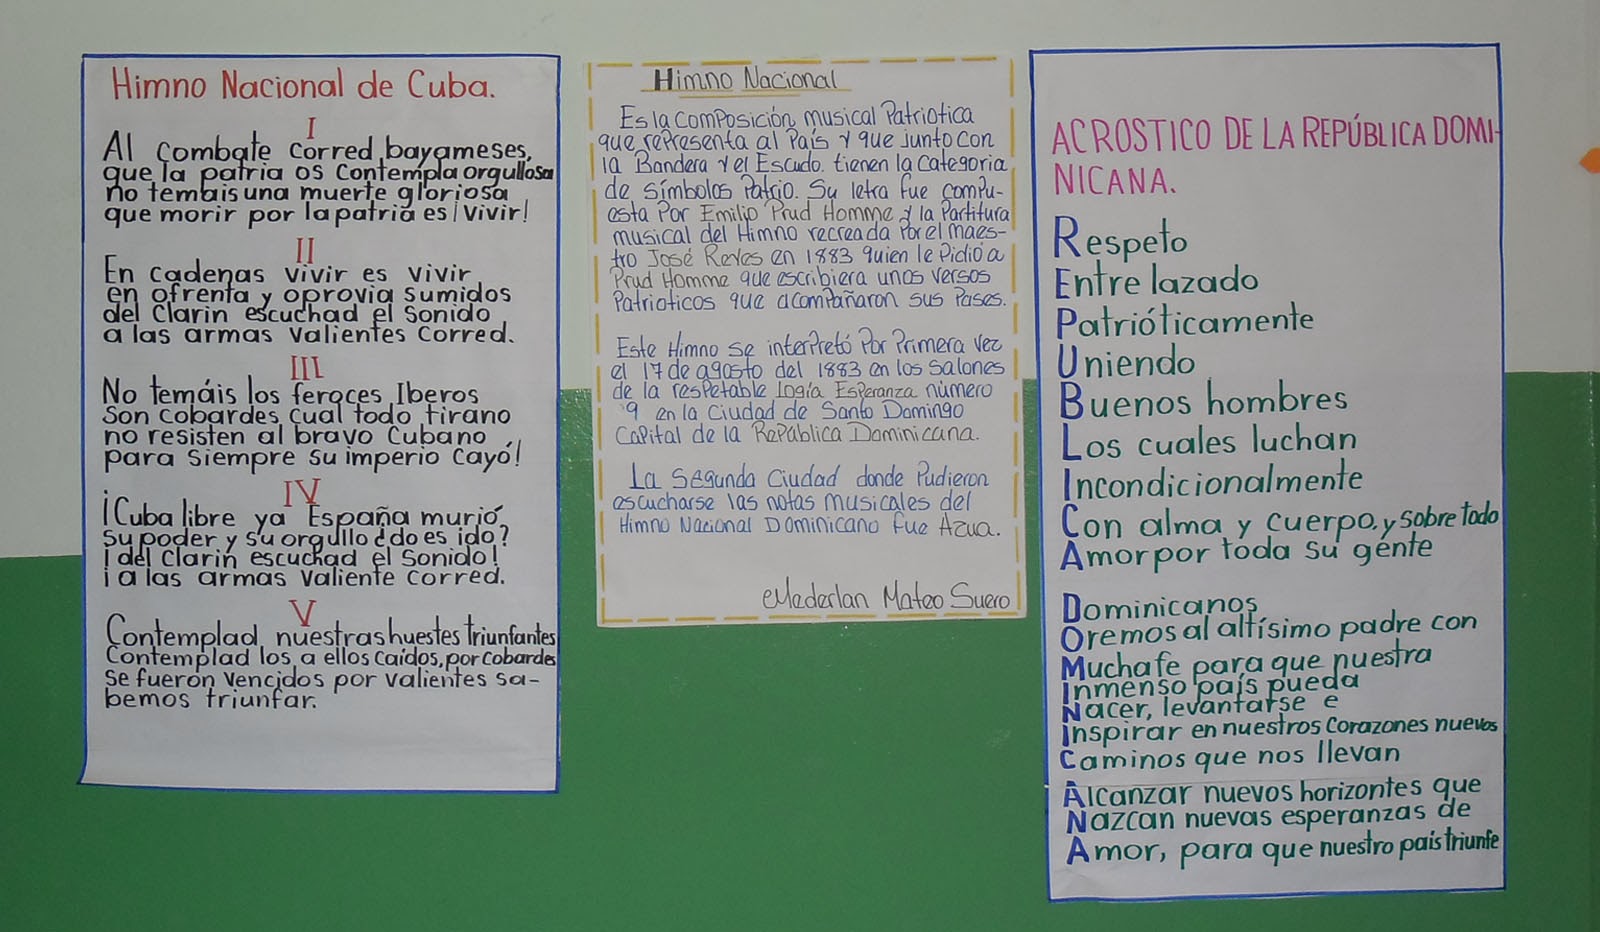 Himno Nacional de Cuba.
I
Al combate corred, bayameses,
que la patria os contempla orgullosa
no temais una muerte gloriosa
que morir por la patria es ¡vivir!
II
En cadenas vivir es vivir
en ofrenta y oprovia sumidos
del clarin escuchad el sonido
a las armas valientes corred.
III
No temáis los feroces Iberos
son cobardes cual todo tirano
no resisten al bravo cubano
para siempre su imperio cayó!
IV
¡Cuba libre ya España murió,
su poder y su orgullo ¿do es ido?
¡del clarin escuchad el sonido!
¡a las armas valiente corred.
V
Contemplad nuestras huestes triunfantes
contemplad los a ellos caídos, por cobardes
se fueron vencidos por valientes sa-
bemos triunfar.
Himno Nacional
Es la composición musical Patriotica
que representa al País y que junto con
la Bandera y el Escudo. tienen la categoria
de símbolos Patrio. Su letra fue compu-
esta Por Emilio Prud Homme y la Partitura
musical del Himno recreada Por el maes-
tro José Reyes en 1883 quien le Pidió a
Prud Homme que escribiera unos versos
Patrioticos que acompañaron sus Pases.
Este Himno se interpretó Por Primera vez
el 17 de agosto del 1883 en los salones
de la respetable logía Esperanza número
9 en la Ciudad de Santo Domingo
Capital de la República Dominicana.
La Segunda Ciudad donde Pudieron
escucharse las notas musicales del
Himno Nacional Dominicano fue Azua.
Mederlan Mateo Suero
ACROSTICO DE LA REPÚBLICA DOMI-
NICANA.
Respeto
Entre lazado
Patrióticamente
Uniendo
Buenos hombres
Los cuales luchan
Incondicionalmente
Con alma y cuerpo, y sobre todo
Amor por toda su gente
Dominicanos
Oremos al altísimo padre con
Mucha fe para que nuestra
Inmenso país pueda
Nacer, levantarse e
Inspirar en nuestros corazones nuevos
Caminos que nos llevan
Alcanzar nuevos horizontes que
Nazcan nuevas esperanzas de
Amor, para que nuestro país triunfe